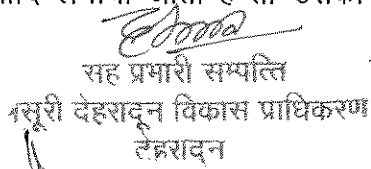 सह प्रभारी सम्पत्ति
मसूरी देहरादून विकास प्राधिकरण
देहरादून